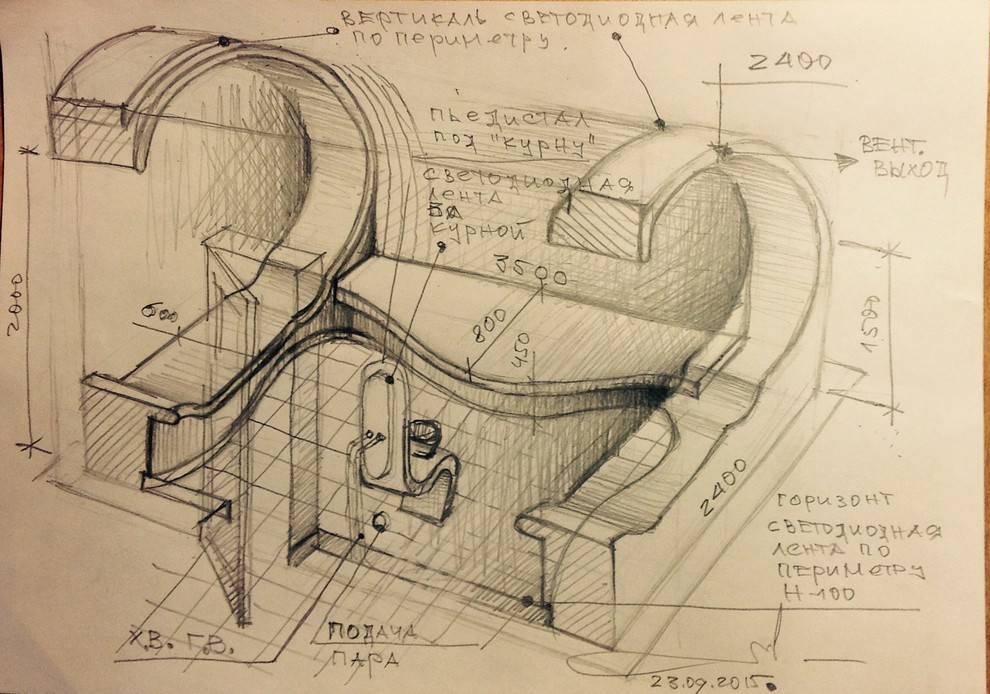 ВЕРТИКАЛЬ СВЕТОДИОДНАЯ ЛЕНТА
ПО ПЕРИМЕТРУ.
2400
ПЬЕДИСТАЛ
ПОД "КУРНУ"
ВЕНТ.
ВЫХОД
СВЕТОДИОДНАЯ
ЛЕНТА
ЗА
КУРНОЙ
3500
2000
600
800
450
1500
2400
ГОРИЗОНТ
СВЕТОДИОДНАЯ
ЛЕНТА ПО
ПЕРИМЕТРУ
H-100
Х.В. Г.В.
ПОДАЧА
ПАРА
23.09.2015.